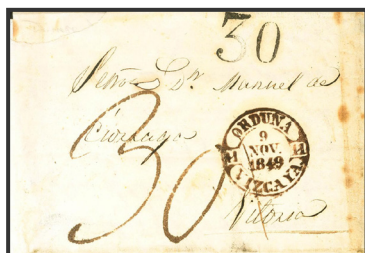 30
Señor Dn. Manuel de
30
ORDUÑA
9
NOV.
1849
VIZCAYA
Vitoria